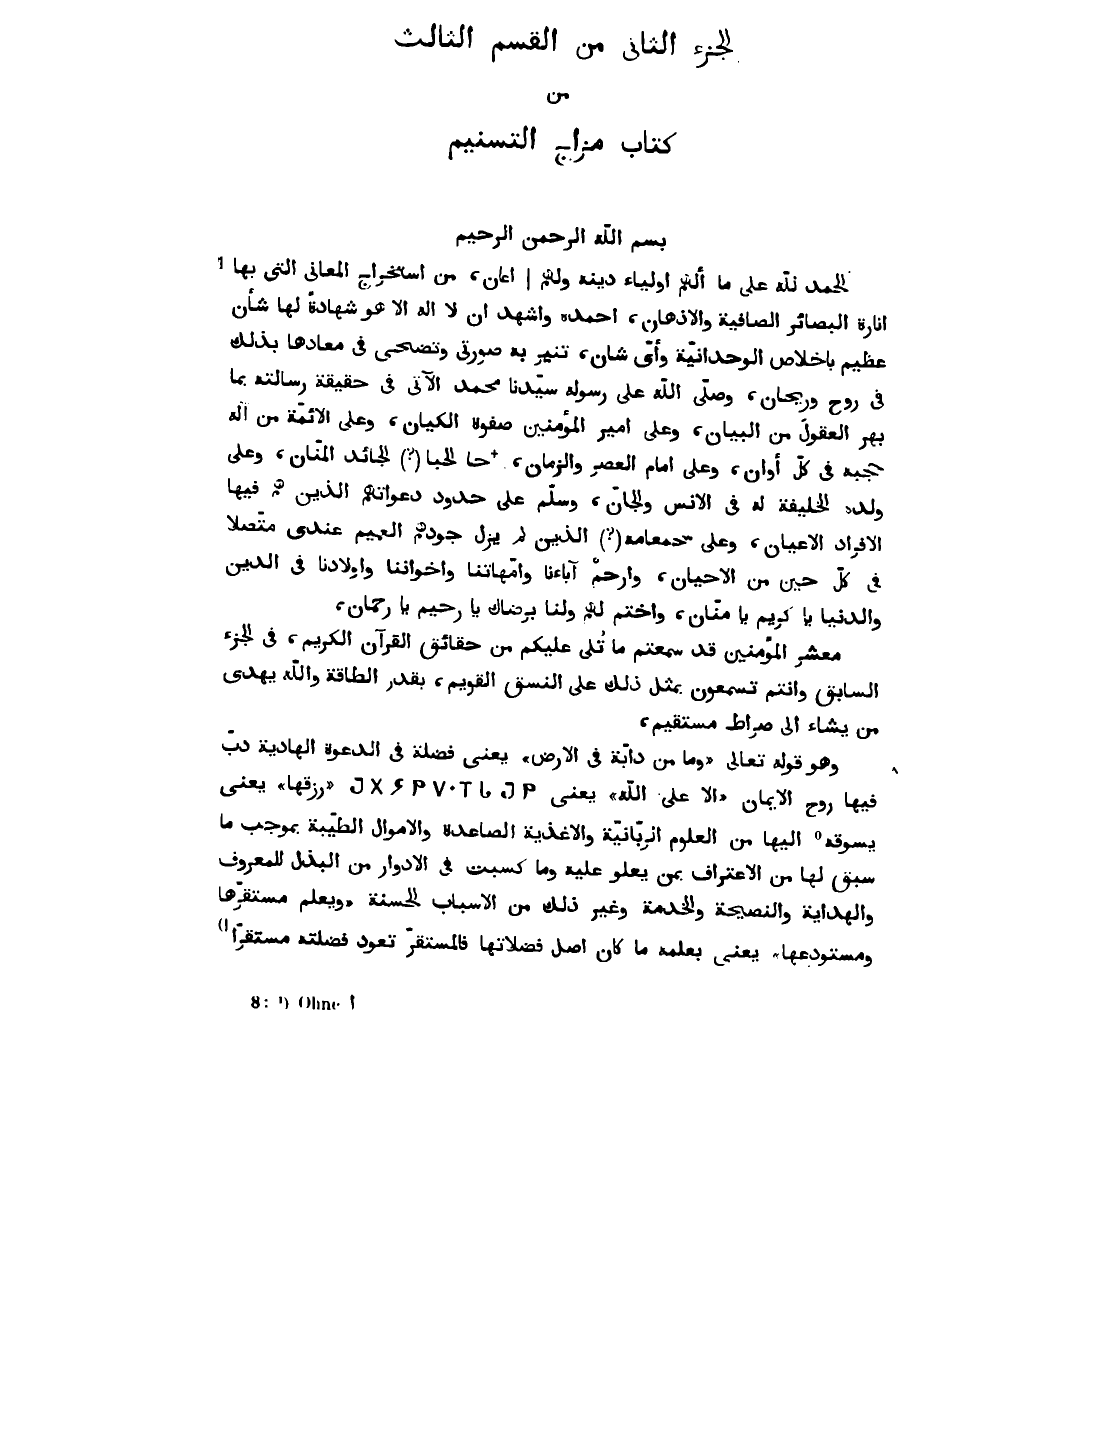 الجزء الثانى من القسم الثالث
من
كتاب مزاج التسنيم
بسم اللّه الرحمن الرحيم
الحمد للّه على ما ألهم اولياء دينه ولهم | اعان، من استخراج المعانى التى بها 1
انارة البصائر الصافية والاذهان، احمده واشهد ان لا اله الا هو شهادةً لها شأن
عظيم باخلاص الوحدانيّة وأىّ شان، تنير به صورتى وتضحى فى معادها بذلك
فى روح وريحان، وصلّى اللّه على رسوله سيّدنا محمد الآتى فى حقيقة رسالته بما
بهر العقولَ من البيان، وعلى امير المؤمنين صفوة الكيان، وعلى الائمّة من آله
حججه فى كلّ أوان، وعلى امام العصر والزمان، +حا الحبا (؟) الجائد المنّان، وعلى
ولده الخليفة له فى الانس والجانّ، وسلّم على حدود دعواتهم الذين هم فيها
الافراد الاعيان، وعلى (؟) الذين لم يزل جودهم العميم عندى متّصلا
فى كلّ حين من الاحيان، وارحمْ آباءنا وامّهاتنا واخواننا واولادنا فى الدين
والدنيا يا كريم يا منّان، واختم لهم ولنا برضاك يا رحيم يا رحمان،
معشر المؤمنين قد سمعتم ما تُلى عليكم من حقائق القرآن الكريم، فى الجزء
السابق وانتم تسمعون بمثل ذلك على النسق القويم، بقدر الطاقة واللّه يهدى
من يشاء الى صراط مستقيم،
وهو قوله تعالى «وما من دابّة فى الارض» يعنى فضلة فى الدعوة الهادية دبّ ٨
فيها روح الايمان «الا على اللّه» يعنى «رزقها» يعنى
يسوقه° اليها من العلوم الربّانيّة والاغذية الصاعدة والاموال الطيّبة بموجب ما
سبق لها من الاعتراف بمن يعلو عليه وما كسبت فى الادوار من البذل للمعروف
والهداية والنصيحة والخدمة وغير ذلك من الاسباب الحسنة «ويعلم مستقرّها
ومستودعها» يعنى بعلمه ما كان اصل فضلاتها فالمستقرّ تعود فضلته مستقرّا¹⁾
8: ¹) Ohne ا